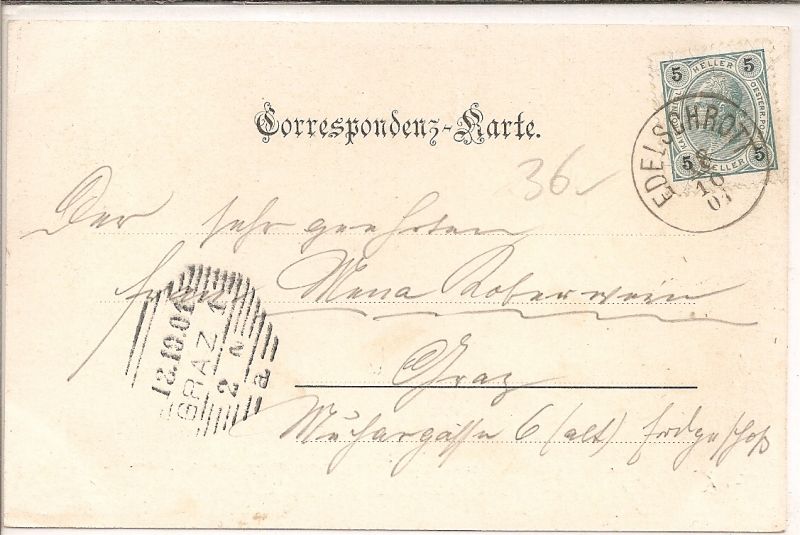 Correspondenz-Karte.
5 HELLER 5
5 HELLER 5
EDELSCHROTT
10
01
36
Der sehr geehrten
Frau Mena Koberwein
Graz
Muchargasse 6 (alt) Erdgeschoß
13.10.01
GRAZ 1
2 N
a